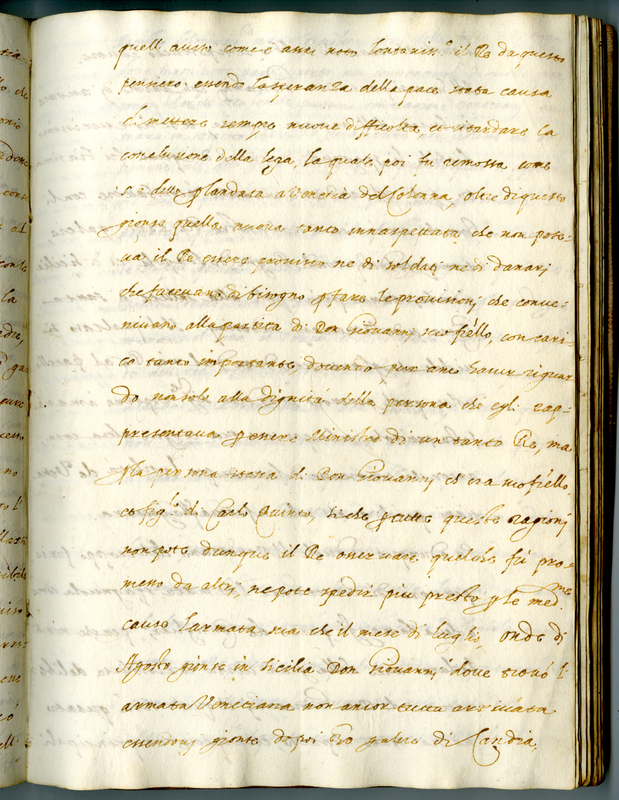 quell aviso come è anci noto lontaniss.º il Re da questo
pensiero, essendo la speranza della pace stata causa
di mettere sempre nuove difficoltà, et ritardare la
conclusione della lega, la quale poi fu
s'è detto p l'andata a Venetia del Colonna, oltre di questo
gionse quella nuova tanto innaspettata, che non pote-
va il Re essere provisto ne di soldati ne di danari
che facevano di bisogno p fare le provisioni che conve-
nivano alla partita di Don Giovanni suo frello, con cari
co tanto importante dovendo pur anco haver riguar
do non solo alla dignità della persona che egli rap-
presentava p essere Ministro di un tanto Re, ma
p la persona stessa di Don Giovanni ch era suo frello,
et figl.º di Carlo Quinto, si che p tutte queste ragioni
non potè dunque il Re osservare quel che fu pro-
messo da altri, ne potè spedir più presto p le med.me
cause l'armata sia che il mese di luglio, onde di
Agosto gionse in Sicilia Don Giovanni, dove trovò l'
armata Venetiana non ancor tutta arrivata
essendovi gionte da poi galere di Candia,